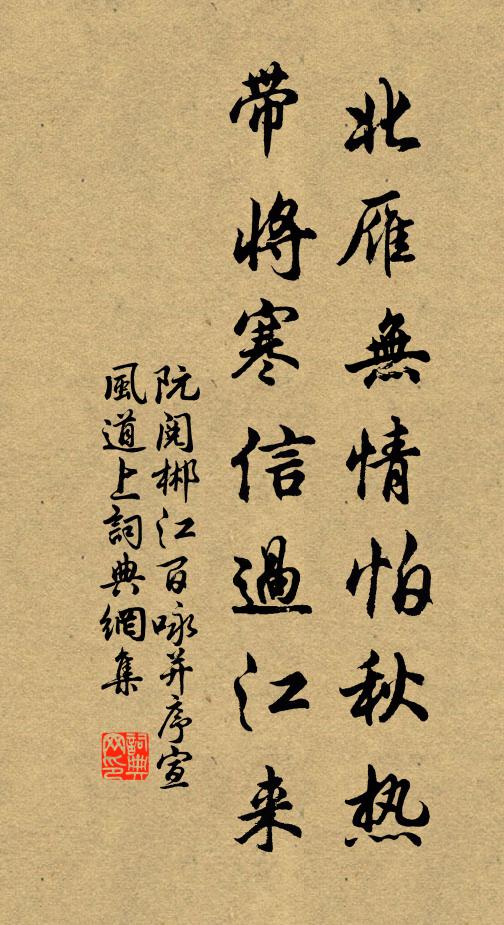 北雁無情怕秋热
带将寒信過江来
阮阅郴江百咏并序宣
風道上詞典網集
詞典网印